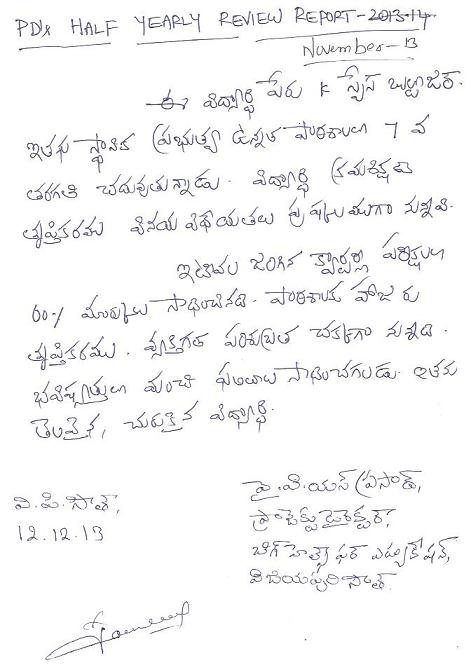 PD's HALF YEARLY REVIEW REPORT-2013-14
November-13
ఈ విద్యార్థి పేరు K స్వేస బుల్లరాజర.
ఇతడు స్థానిక ప్రభుత్వ ఉన్నత పాఠశాలలు 7 వ
తరగతి చదువుతున్నాడు. విద్యార్థి క్రమశిక్షణ
తృప్తికరము వినయ విధేయతలు పుష్కలముగా నున్నవి.
ఇటీవల జరిగిన క్వార్టర్లీ పరీక్షలలో
60% మార్కులు సాధించినది. పాఠశాలకు హాజరు
తృప్తికరము. వ్యక్తిగత పరిశుభ్రత చక్కగా నున్నది.
భవిష్యత్తులో మంచి ఫలితాలు సాధించగలడు. ఇతడు
తెలివైన, చురుకైన విద్యార్థి.
వి.పి.సౌత్,
12.12.13
వై.వి.యస్ ప్రసాద్,
ప్రాజెక్టు డైరెక్టర్,
బిగ్ హెల్ప్ ఫర్ ఎడ్యుకేషన్,
విజయపురి సౌత్.